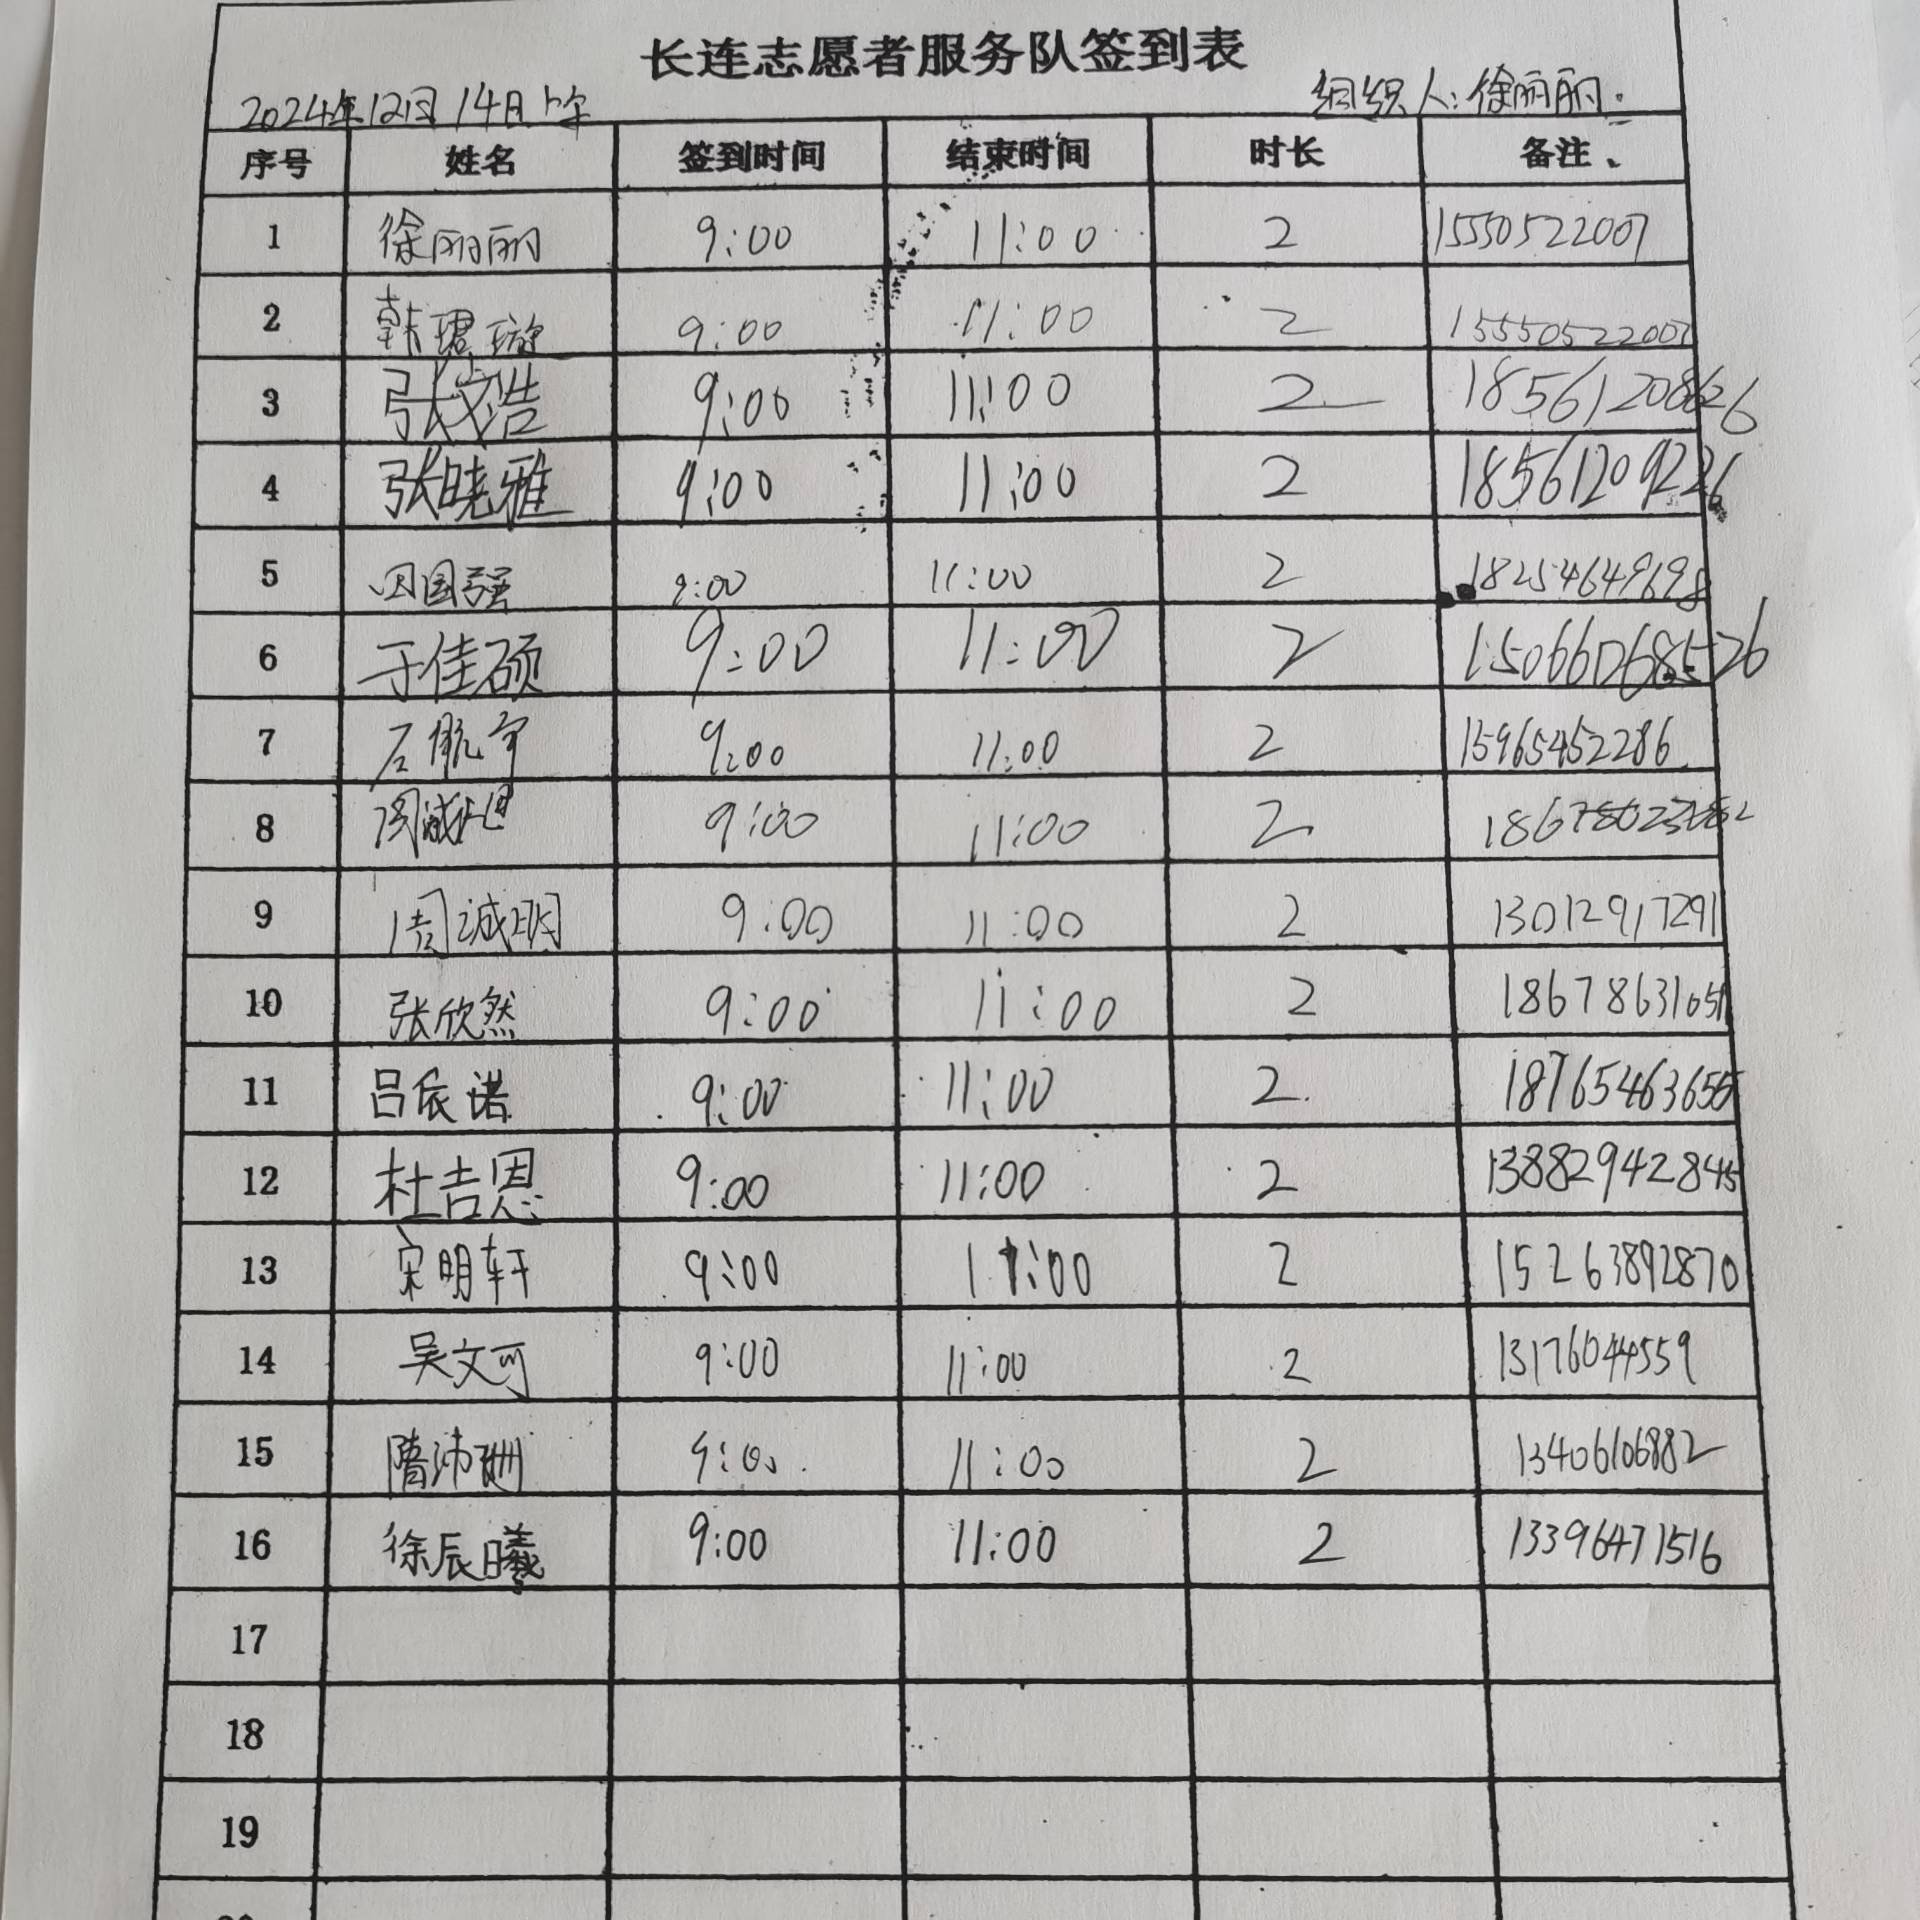 长连志愿者服务队签到表
2024年12月14日上午 组织人:徐丽丽.
序号 姓名 签到时间 结束时间 时长 备注、
1 徐丽丽 9:00 11:00 2 15550522007
2 韩珺璇 9:00 11:00 2 15550522007
3 张文浩 9:00 11:00 2 18561208626
4 张晓雅 9:00 11:00 2 18561209226
5 国强 9:00 11:00 2 18254649698
6 于佳硕 9:00 11:00 2
7 石航宇 9:00 11:00 2 15965452286
8 周诚旭 9:00 11:00 2
9 周诚明 9:00 11:00 2 13012917291
10 张欣然 9:00 11:00 2 18678631051
11 吕辰诺 9:00 11:00 2. 18765463655
12 杜吉恩 9:00 11:00 2 13882942845
13 宋明轩 9:00 11:00 2 15263892870
14 吴文可 9:00 11:00 2 13176044559
15 隋沛珊 9:00 11:00 2 13406106882
16 徐辰曦 9:00 11:00 2 13396471516
17
18
19